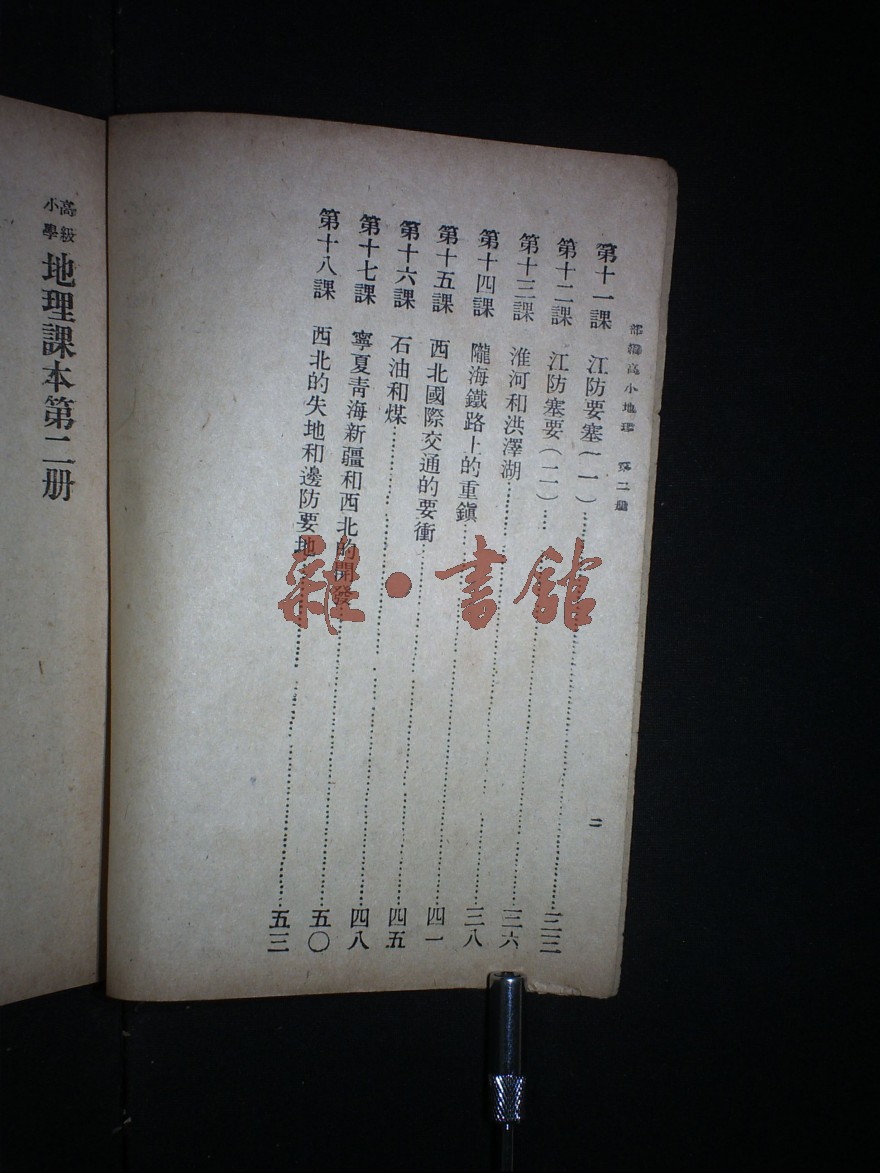 部編高小地理 第二冊
二
第十一課 江防要塞(一)……三三
第十二課 江防塞要(二)……三六
第十三課 淮河和洪澤湖……三八
第十四課 隴海鐵路上的重鎭……四一
第十五課 西北國際交通的要衝……四五
第十六課 石油和煤……四八
第十七課 寧夏靑海新疆和西北的開發……五〇
第十八課 西北的失地和邊防要地……五三
高級小學 地理課本第二册
雜·書館